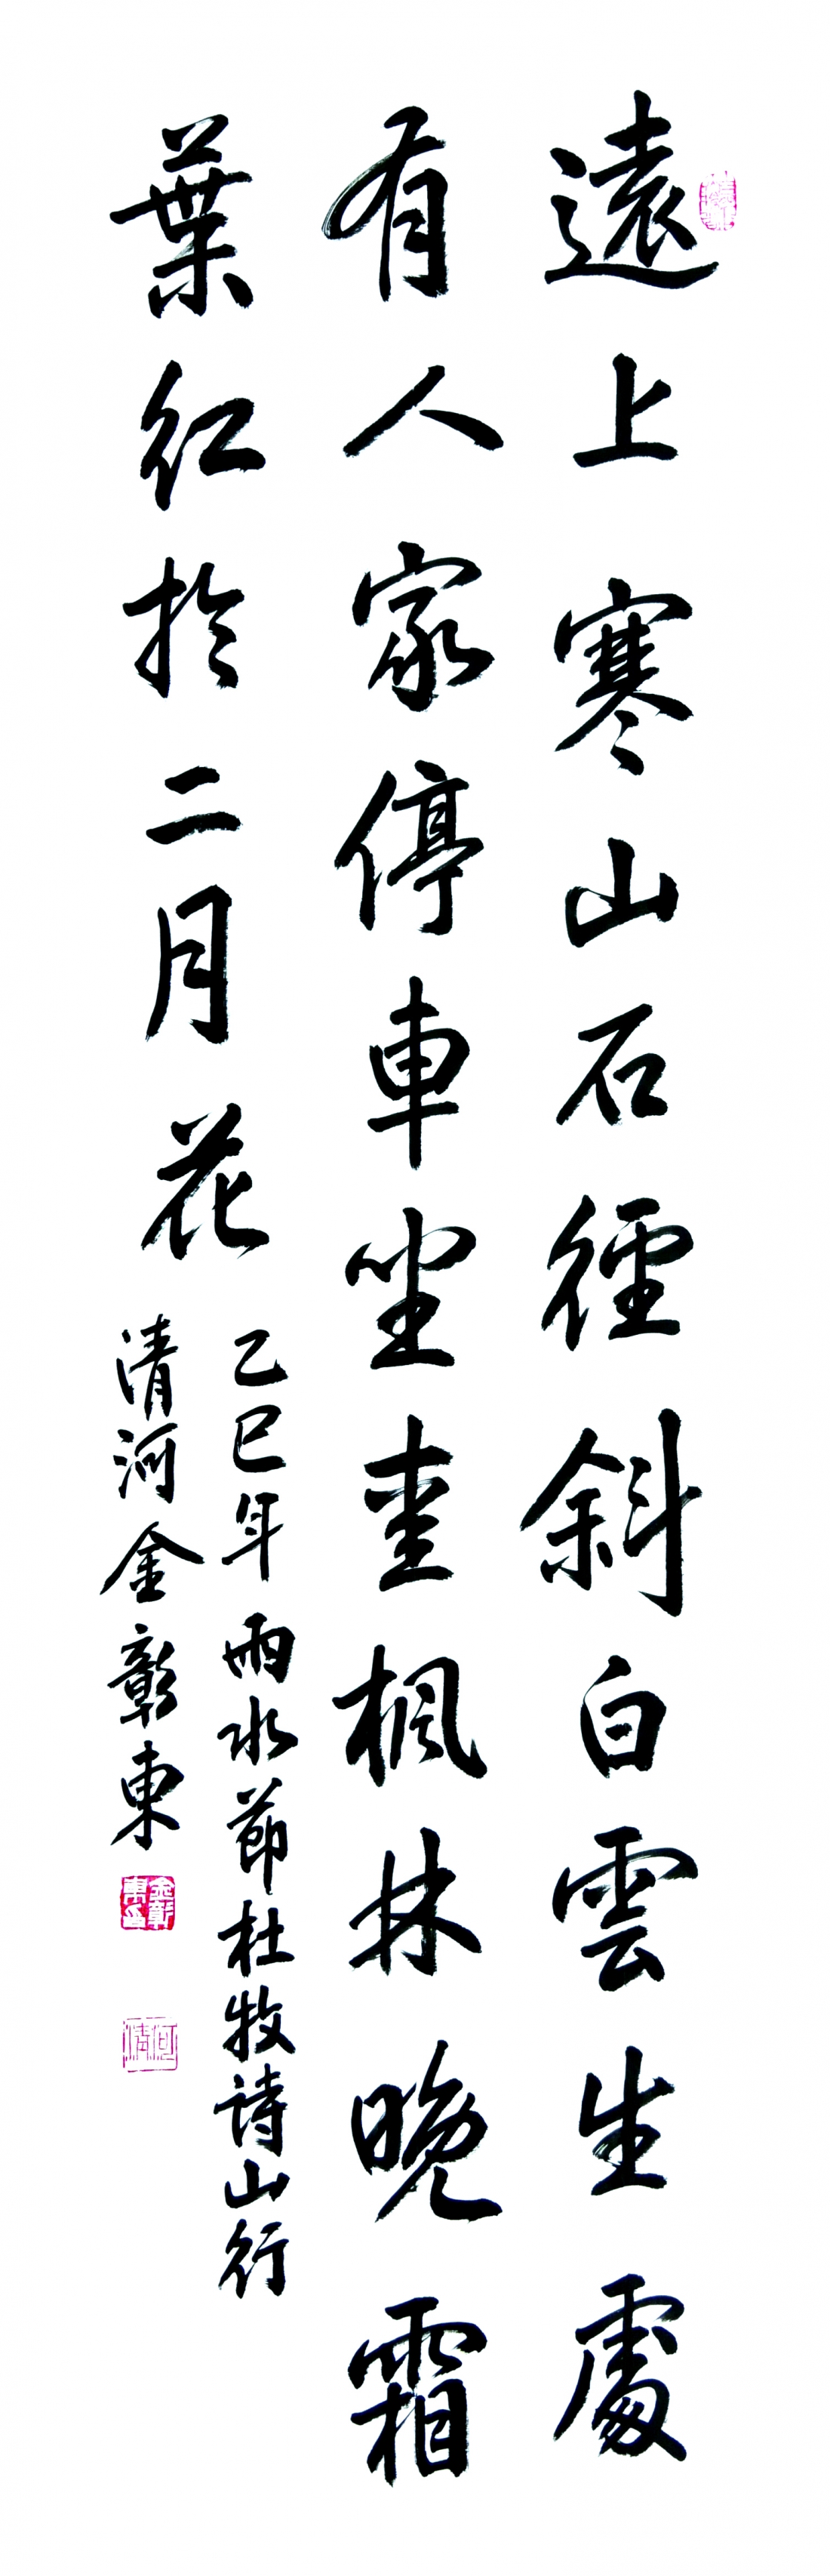 遠上寒山石徑斜白雲生處
有人家停車坐愛楓林晚霜
葉紅於二月花
乙巳年雨水節杜牧詩山行
清河金彰東
金彰東印
清河